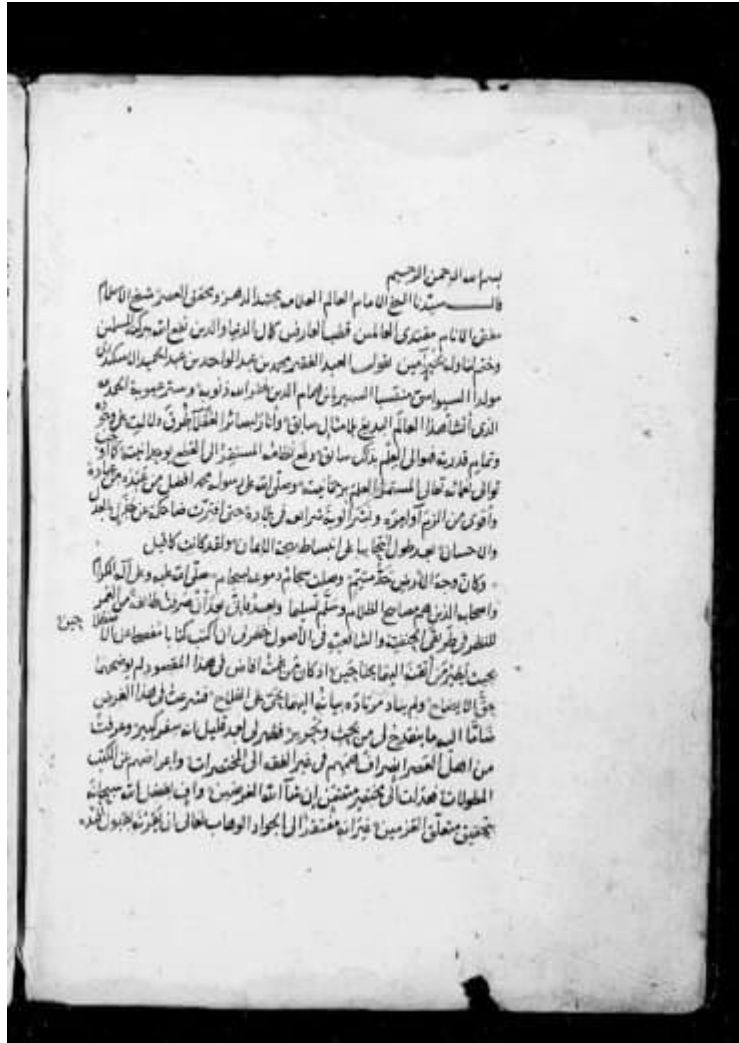 بسم الله الرحمن الرحيم
قال سيدنا الشيخ الامام العالم العلامه مجتهد الدهر ومحقق العصر شيخ الاسلام
مفتى الانام مقتدى العالمين قطب العارفين كمال الدنيا والدين نفع الله ببركته المسلمين
وختم لنا وله بخير آمين يقول العبد الفقير محمد بن عبد الواحد بن عبد الحميد الاسكندرى
مولدا السيواسى منتسبا الشهير بابن همام الدين غفر الله ذنوبه وستر عيوبه الحمد لله
الذى أنشأ هذا العالم البديع بلا مثال سابق وأنار لبصائر العقلاء طرق دلالته على وجوده
وتمام قدرته فهو الى العلم بذلك سائق دفع نظامه المستقر الى القطع بوحدانيته كما أوجب
توالى نعمائه تعالى المستمل العلم برحمانيته وصلى الله على رسوله محمد افضل من عبده من عباده
وأقوى من الزم أوامره ونشر ألوية شرائعه فى بلاده حتى افترت ضاحكة عن جذل بالعدل
والاحسان بعد طول انتحابها على انبساط بهجة الايمان ولقد كانت كما قيل
وكان وجه الأرض خد متيم وصلت سجام دموعه بسجام صلى الله عليه وعلى آله الكرام
واصحابه الذين هم مصابيح الظلام وسلم تسليما وبعد فانى بعد أن صرفت طائفة من العمر
للنظر فى طريقى الحنفية والشافعية فى الأصول خطر لى ان اكتب كتابا مفصحا عن الاصطلاحين
بحيث يطير من أتقنه اليهما بجناحين اذ كان من علمته افاض فى هذا المقصود لم يوضحهما
حق الايضاح ولم يناد مرتادهما بيانه اليهما بحى على الفلاح فشرعت فى هذا الغرض
ضاما اليه ما ينقدح لى من بحث وتحرير فظهر لى بعد قليل انه سفر كبير وعرفت
من اهل العصر انصراف هممهم فى غير الفقه الى المختصرات واعراضهم عن الكتب
المطولات فعدلت الى مختصر متضمن إن شآ الله الغرضين واف بفضل الله سبحانه
بتحقيق متعلق العزمين غير انه مفتقر الى الجواد الوهاب تعالى ان يقرنه بقبول أفئدة